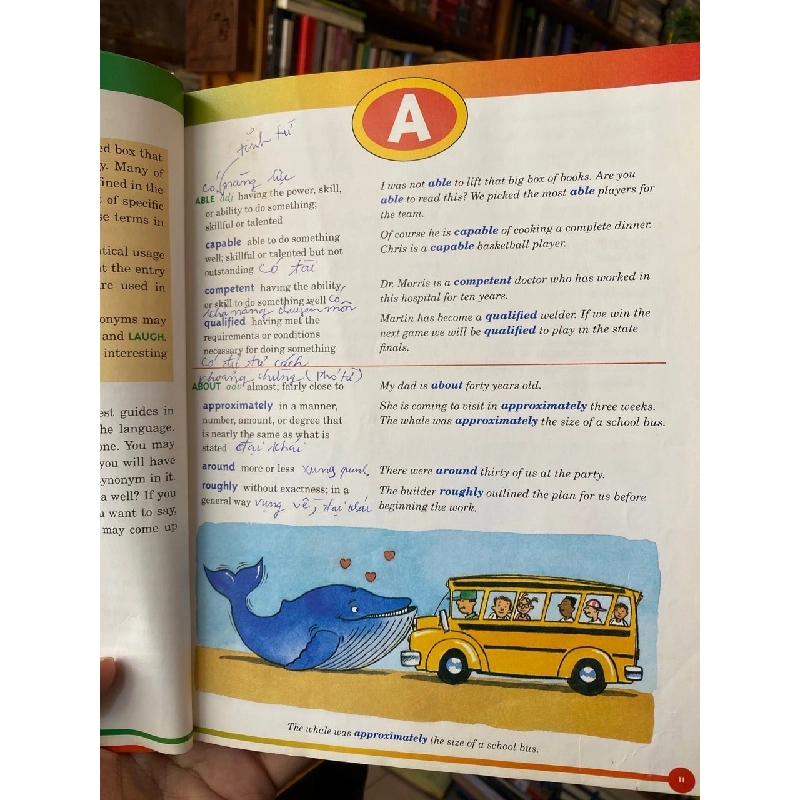 ed box that
y. Many of
ined in the
of specific
se terms in
tical usage
at the entry
re used in
onyms may
and LAUGH.
interesting
est guides in
he language.
one. You may
you will have
ynonym in it.
a well? If you
u want to say,
may come up
A
tính từ
có năng lực
ABLE adj having the power, skill,
or ability to do something;
skillful or talented
I was not able to lift that big box of books. Are you
able to read this? We picked the most able players for
the team.
capable able to do something
well; skillful or talented but not
outstanding có tài
Of course he is capable of cooking a complete dinner.
Chris is a capable basketball player.
competent having the ability
or skill to do something well có
khả năng chuyên môn
Dr. Morris is a competent doctor who has worked in
this hospital for ten years.
qualified having met the
requirements or conditions
necessary for doing something
có đủ tư cách
Martin has become a qualified welder. If we win the
next game we will be qualified to play in the state
finals.
khoảng chừng (Phó từ)
ABOUT adv almost; fairly close to
My dad is about forty years old.
approximately in a manner,
number, amount, or degree that
is nearly the same as what is
stated đại khái
She is coming to visit in approximately three weeks.
The whale was approximately the size of a school bus.
around more or less xung quanh
There were around thirty of us at the party.
roughly without exactness; in a
general way vụng về, đại khái
The builder roughly outlined the plan for us before
beginning the work.
The whale was approximately the size of a school bus.
11